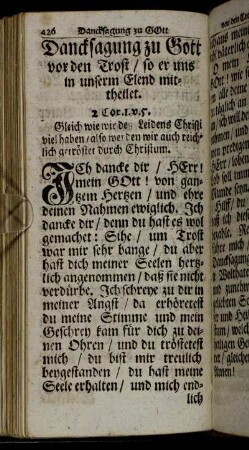 426 Dancksagung zu GOtt
Dancksagung zu Gott
vor den Trost / so er uns
in unserm Elend mit-
theilet.
2 Cor. I. v. 5.
Gleich wie wir deß Leidens Christi
viel haben / also werden wir auch reich-
lich getröstet durch Christum.
ICh dancke dir / HErr!
mein GOtt! von gan-
tzem Hertzen / und ehre
deinen Nahmen ewiglich. Ich
dancke dir / denn du hast es wol
gemachet: Sihe / um Trost
war mir sehr bange / du aber
hast dich meiner Seelen hertz-
lich angenommen / daß sie nicht
verdürbe. Ich schreye zu dir in
meiner Angst / da erhöretest
du meine Stimme und mein
Geschrey kam für dich zu dei-
nen Ohren / und du tröstetest
mich / du bist mir treulich
beygestanden / du hast meine
Seele erhalten / und mich end-
lich